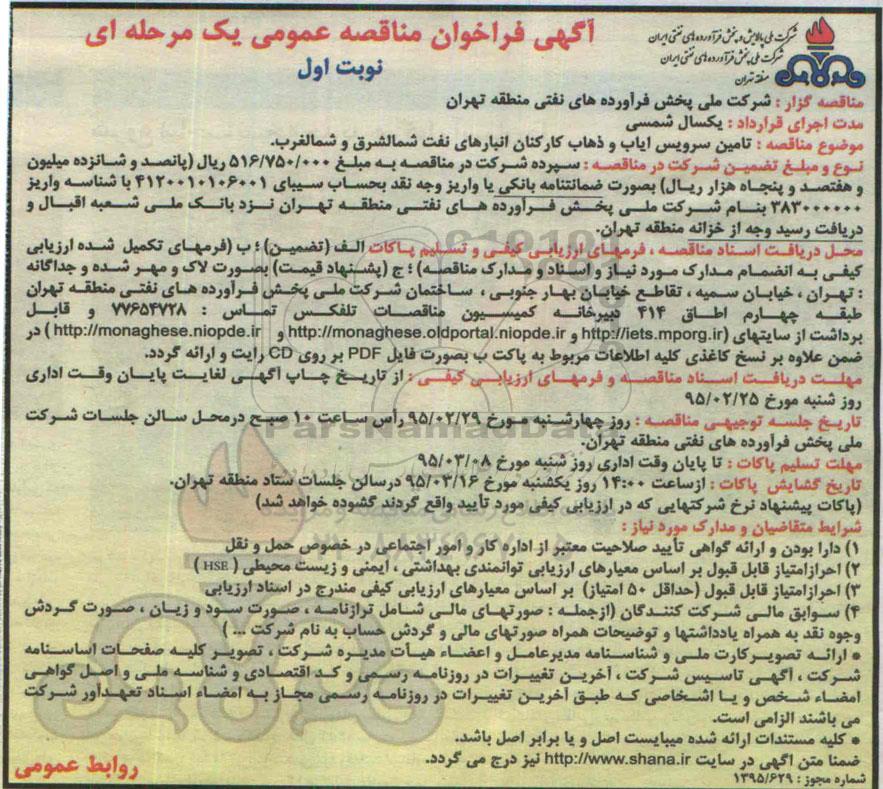 شرکت ملی پالایش و پخش فرآورده های نفتی ایران
شرکت ملی پخش فرآورده های نفتی ایران
منطقه تهران
آگهی فراخوان مناقصه عمومی یک مرحله ای
نوبت اول
مناقصه گزار : شرکت ملی پخش فرآورده های نفتی منطقه تهران
مدت اجرای قرارداد : یکسال شمسی
موضوع مناقصه : تامین سرویس ایاب و ذهاب کارکنان انبارهای نفت شمالشرق و شمالغرب.
نوع و مبلغ تضمین شرکت در مناقصه : سپرده شرکت در مناقصه به مبلغ ۵۱۶/۷۵۰/۰۰۰ ریال (پانصد و شانزده میلیون
و هفتصد و پنجاه هزار ریال) بصورت ضمانتنامه بانکی یا واریز وجه نقد بحساب سیبای ۴۱۲۰۰۱۰۱۰۶۰۰۱ با شناسه واریز
۳۸۳۰۰۰۰۰۰ بنام شرکت ملی پخش فرآورده های نفتی منطقه تهران نزد بانک ملی شعبه اقبال و
دریافت رسید وجه از خزانه منطقه تهران.
محل دریافت اسناد مناقصه ، فرمهای ارزیابی کیفی و تسلیم پاکات الف (تضمین) ؛ ب (فرمهای تکمیل شده ارزیابی
کیفی به انضمام مدارک مورد نیاز و اسناد و مدارک مناقصه) ؛ ج (پیشنهاد قیمت) بصورت لاک و مهر شده و جداگانه
: تهران ، خیابان سمیه ، تقاطع خیابان بهار جنوبی ، ساختمان شرکت ملی پخش فرآورده های نفتی منطقه تهران
طبقه چهارم اطاق ۴۱۴ دبیرخانه کمیسیون مناقصات تلفکس تماس : ۷۷۶۵۴۷۲۸ و قابل
برداشت از سایتهای (http://iets.mporg.ir و http://monaghese.oldportal.niopde.ir و http://monaghese.niopde.ir ) در
ضمن علاوه بر نسخ کاغذی کلیه اطلاعات مربوط به پاکت ب بصورت فایل PDF بر روی CD رایت و ارائه گردد.
مهلت دریافت اسناد مناقصه و فرمهای ارزیابی کیفی : از تاریخ چاپ آگهی لغایت پایان وقت اداری
روز شنبه مورخ ۹۵/۰۲/۲۵
تاریخ جلسه توجیهی مناقصه : روز چهارشنبه مورخ ۹۵/۰۲/۲۹ رأس ساعت ۱۰ صبح درمحل سالن جلسات شرکت
ملی پخش فرآورده های نفتی منطقه تهران.
مهلت تسلیم پاکات : تا پایان وقت اداری روز شنبه مورخ ۹۵/۰۳/۰۸
تاریخ گشایش پاکات : ازساعت ۱۴:۰۰ روز یکشنبه مورخ ۹۵/۰۳/۱۶ درسالن جلسات ستاد منطقه تهران.
(پاکات پیشنهاد نرخ شرکتهایی که در ارزیابی کیفی مورد تأیید واقع گردند گشوده خواهد شد)
شرایط متقاضیان و مدارک مورد نیاز :
۱) دارا بودن و ارائه گواهی تأیید صلاحیت معتبر از اداره کار و امور اجتماعی در خصوص حمل و نقل
۲) احرازامتیاز قابل قبول بر اساس معیارهای ارزیابی توانمندی بهداشتی ، ایمنی و زیست محیطی ( HSE )
۳) احرازامتیاز قابل قبول (حداقل ۵۰ امتیاز) بر اساس معیارهای ارزیابی کیفی مندرج در اسناد ارزیابی
۴) سوابق مالی شرکت کنندگان (ازجمله : صورتهای مالی شامل ترازنامه ، صورت سود و زیان ، صورت گردش
وجوه نقد به همراه یادداشتها و توضیحات همراه صورتهای مالی و گردش حساب به نام شرکت ... )
* ارائه تصویرکارت ملی و شناسنامه مدیرعامل و اعضاء هیأت مدیره شرکت ، تصویر کلیه صفحات اساسنامه
شرکت ، آگهی تاسیس شرکت ، آخرین تغییرات در روزنامه رسمی و کد اقتصادی و شناسه ملی و اصل گواهی
امضاء شخص و یا اشخاصی که طبق آخرین تغییرات در روزنامه رسمی مجاز به امضاء اسناد تعهدآور شرکت
می باشند الزامی است.
* کلیه مستندات ارائه شده میبایست اصل و یا برابر اصل باشد.
ضمنا متن اگهی در سایت http://www.shana.ir نیز درج می گردد.
شماره مجوز : ۱۳۹۵/۶۲۹
روابط عمومی
ParsNamadData